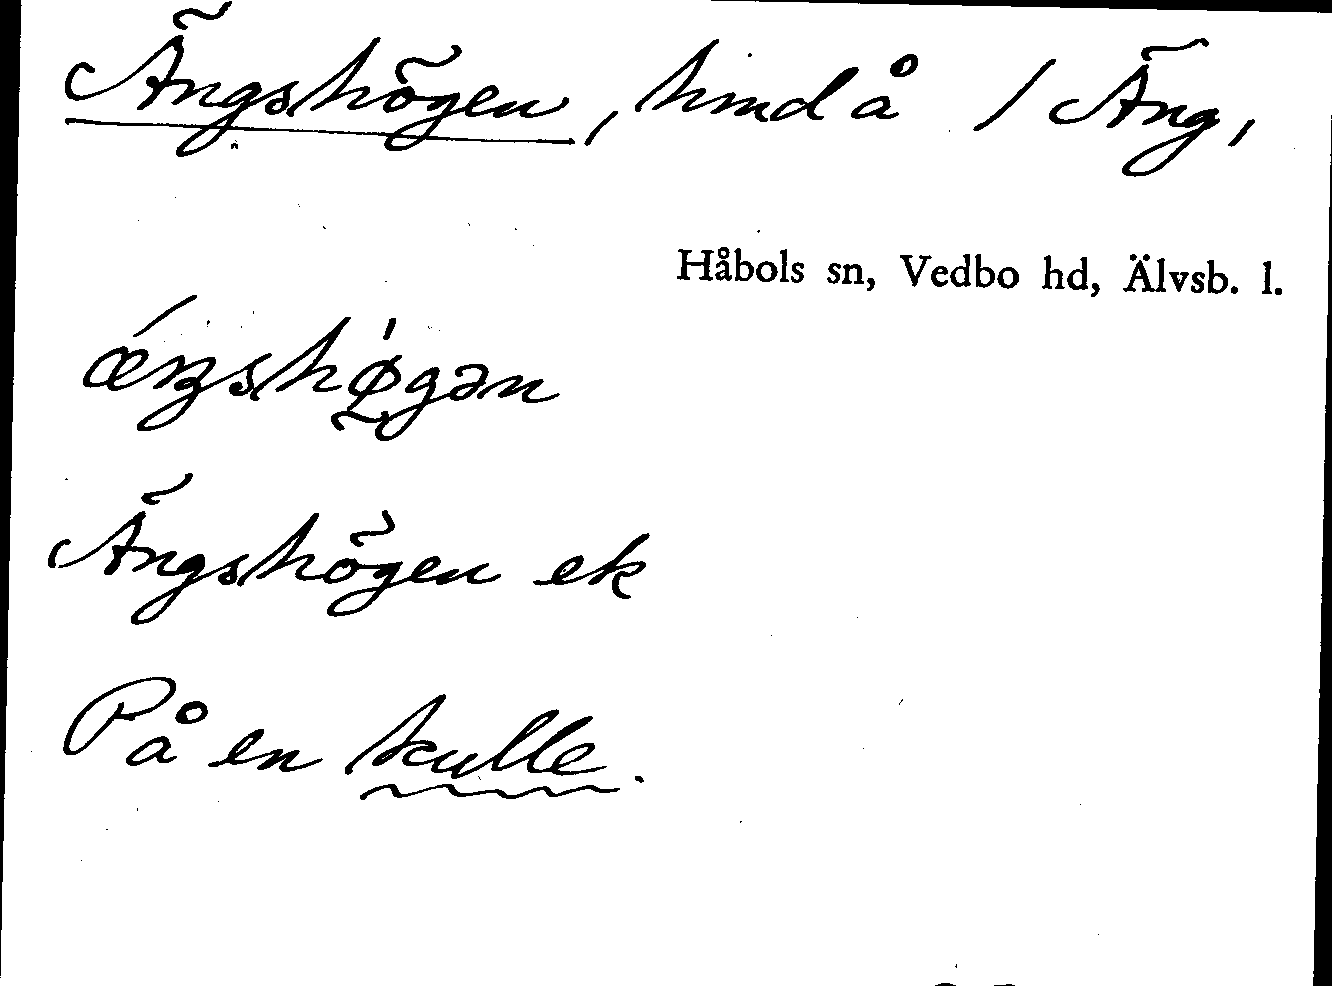 Ängshögen, hmd å / Äng,
Håbols sn, Vedbo hd, Älvsb. l.
ǽŋshǿ̨gən
Ängshögen ek
På en kulle.